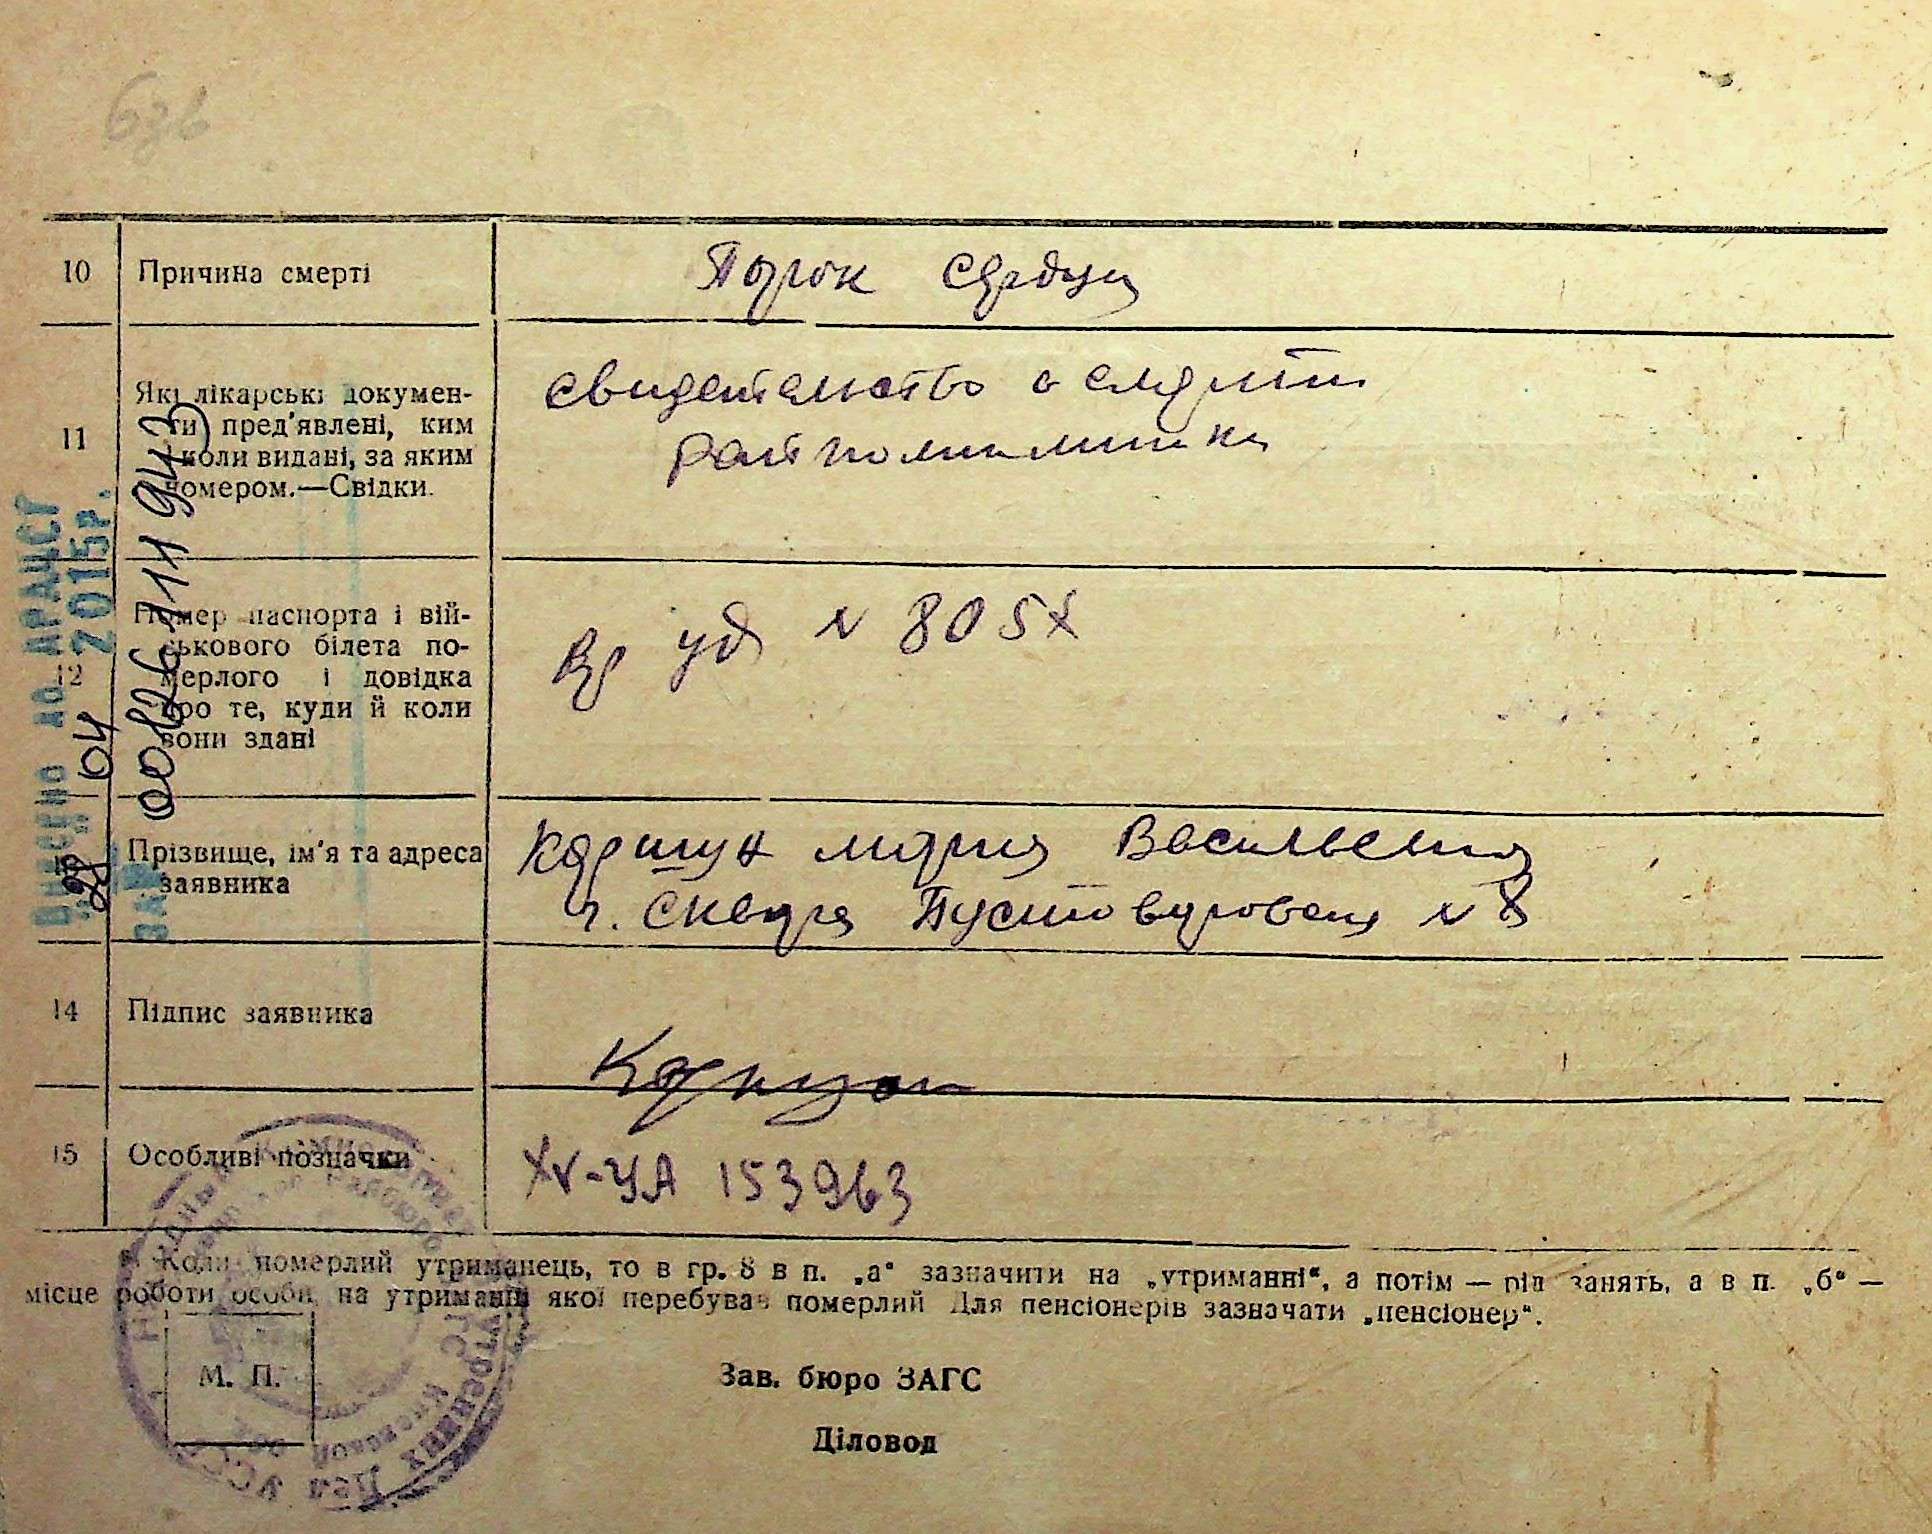 10 Причина смерті Порок сердца
11 Які лікарські докумен-
ти пред'явлені, ким
і коли видані, за яким
номером.—Свідки.
свидетельство о смерти
райполиклиники
12 Номер паспорта і вій-
ськового білета по-
мерлого і довідка
про те, куди й коли
вони здані
Вр уд № 805
Прізвище, ім'я та адреса
заявника
Мария Васильевна
г. Сквира Пустоваровская № 8
14 Підпис заявника
15 Особливі позначки XV-УА 153963
Коли померлий утриманець, то в гр. 8 в п. „а“ зазначити на „утриманні“, а потім — рід занять, а в п. „б“ —
місце роботи особи, на утриманні якої перебував померлий Для пенсіонерів зазначати „пенсіонер“.
М. П.
Зав. бюро ЗАГС
Діловод
Внесено до ДРАЦСГ
04 2015р.
00126111943